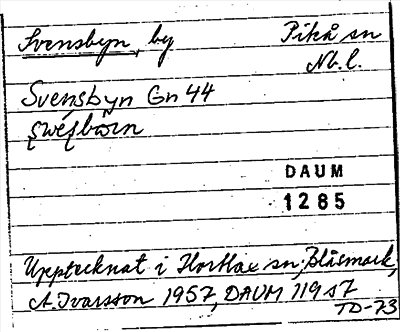 Svensbyn, by Piteå sn
Nb.l.
Svensbyn Gn 44
DAUM
1285
Upptecknat i Hortlax sn, Blåsmark,
A. Ivarsson 1957, DAUM 119 s7
TD-73